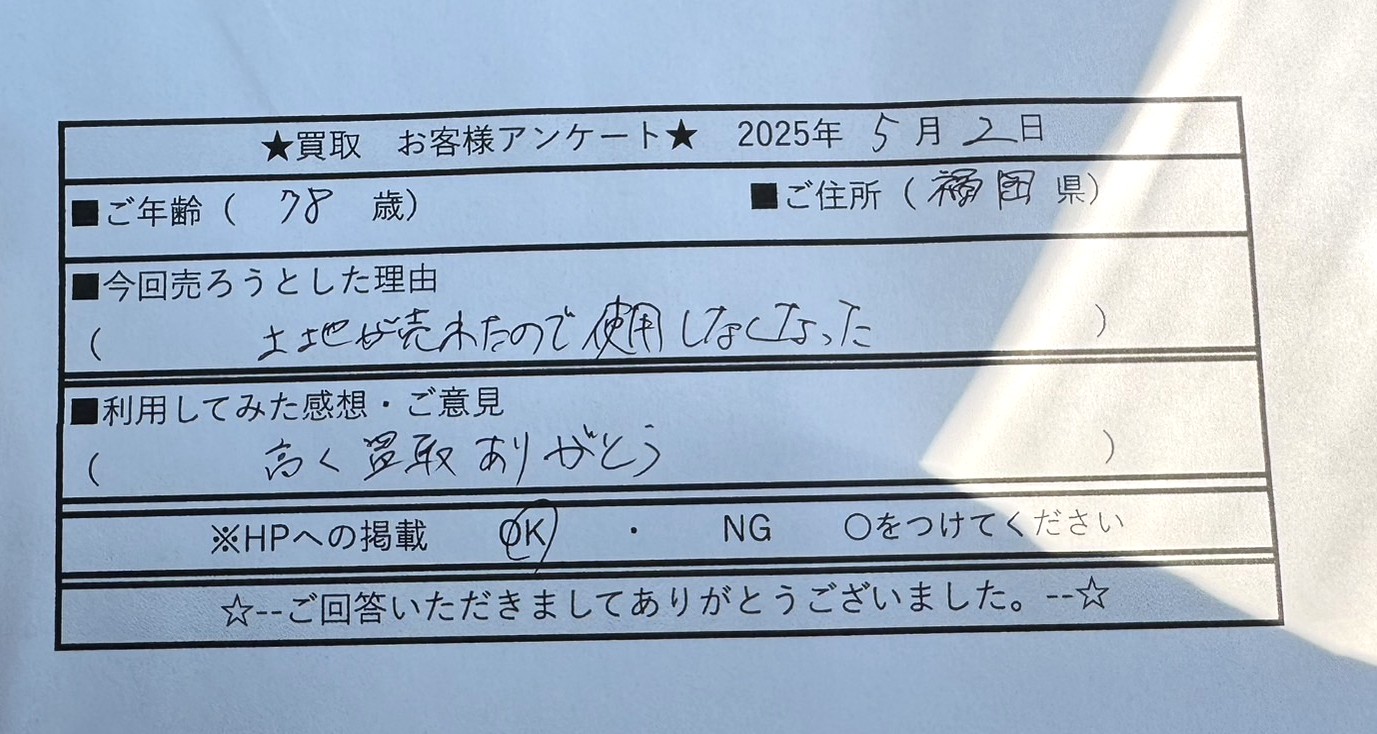 ★買取　お客様アンケート★　2025年 5 月 2 日
■ご年齢（ 78 歳）　■ご住所（ 福岡 県）
■今回売ろうとした理由
（ 土地が売れたので使用しなくなった ）
■利用してみた感想・ご意見
（ 高く買取ありがとう ）
※HPへの掲載　OK　・　NG　〇をつけてください
☆--ご回答いただきましてありがとうございました。--☆